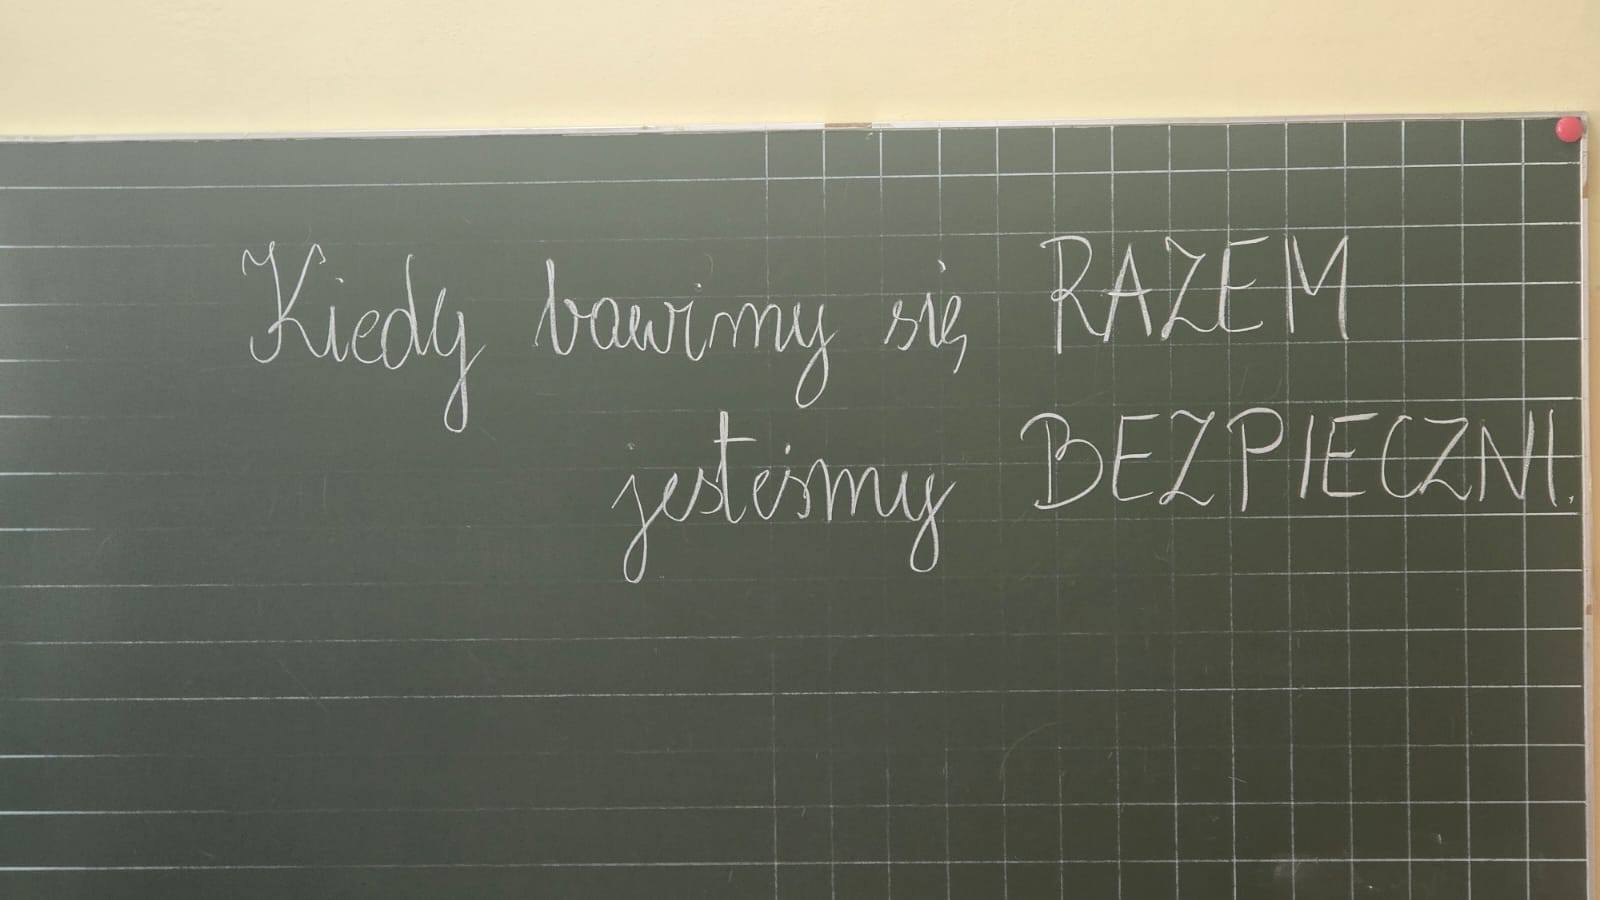 Kiedy bawimy się RAZEM
jesteśmy BEZPIECZNI.